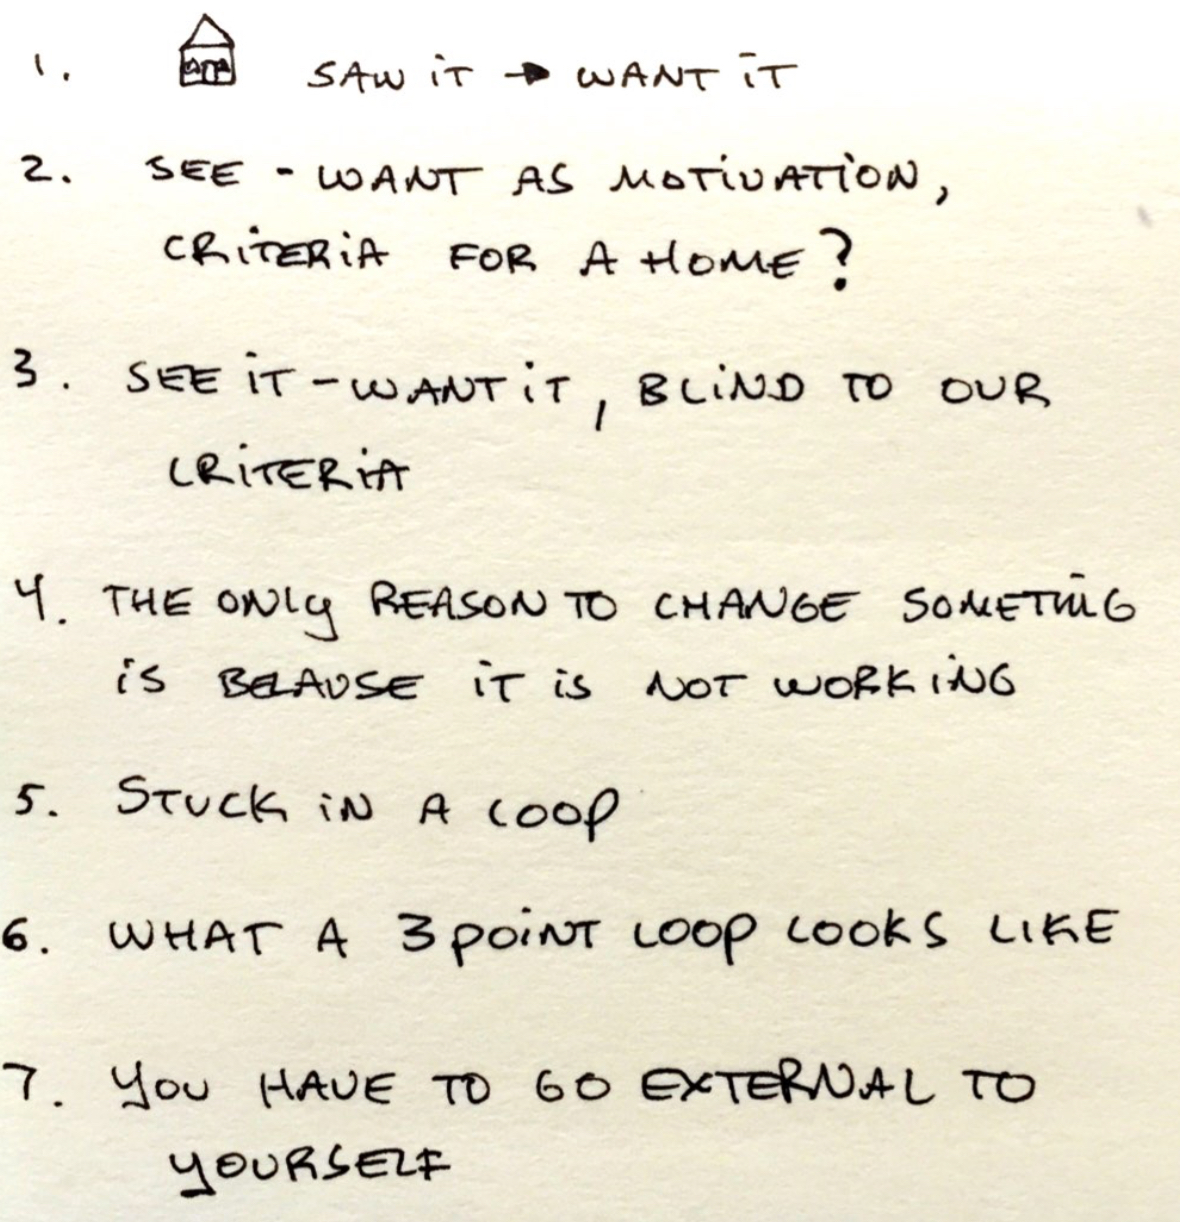 1. SAW iT → WANT iT
2. SEE - WANT AS MOTiVATiON,
CRiTERiA FOR A HOME?
3. SEE iT - WANT iT, BLiND TO OUR
CRiTERiA
4. THE ONLy REASON TO CHANGE SOMETiNG
iS BECAUSE iT iS NOT WORKiNG
5. STUCK iN A LOOP
6. WHAT A 3 POiNT LOOP LOOKS LIKE
7. YOU HAVE TO GO EXTERNAL TO
YOURSELF